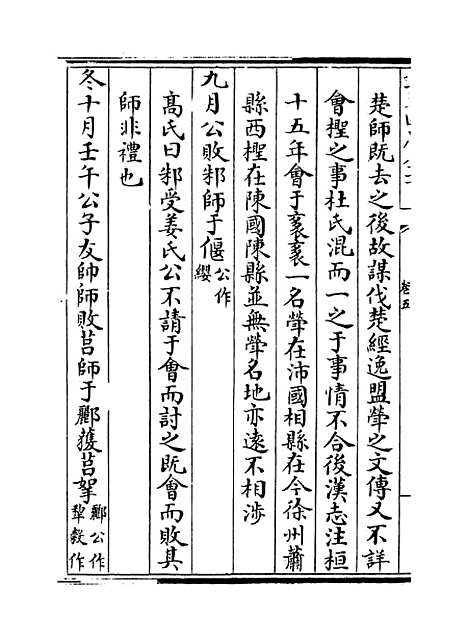 卷五
楚師既去之後故謀伐楚經逸盟犖之文傳又不詳
會檉之事杜氏混而一之于事情不合後漢志注桓
十五年會于袲袲一名犖在沛國相縣在今徐州蕭
縣西檉在陳國陳縣並無犖名地亦遠不相涉
九月公敗邾師于偃公作
纓
高氏曰邾受姜氏公不請于會而討之既會而敗其
師非禮也
冬十月壬午公子友帥師敗莒師于酈獲莒挐酈公作
犂穀作